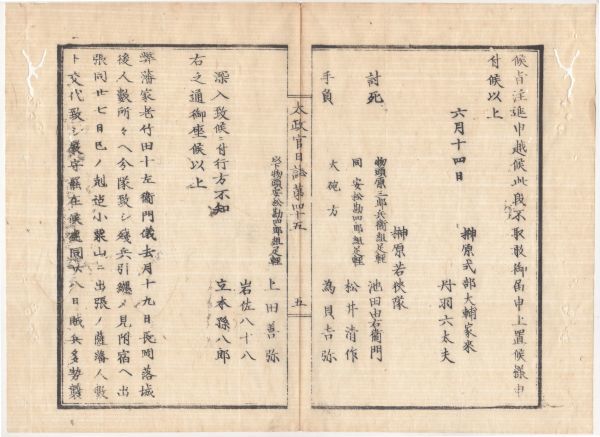 候旨注進申越候此段不取敢御届申上置候様申
付候以上
六月十四日
榊原式部大輔家来
丹羽六太夫
榊原若狭隊
討死
物頭原三郎兵衛組足軽
池田由右衞門
同 安松勘四郎組足軽
松井清作
手負
大砲方
為貝吉弥
太政官日誌第四十五
五
以下物頭安松勘四郎組足軽
上田善弥
岩佐八十八
立本孫八郎
深入致候ニ付行方不知
右之通御座候以上
弊藩家老竹田十左衞門儀去月十九日長岡落城
後人数所々ヘ分隊致シ残兵引纏メ見附宿ヘ出
張同廿七日巳ノ刻迄小栗山ニ出張ノ薩藩人数
ト交代致シ厳守罷在候処同廿八日賊兵多勢襲